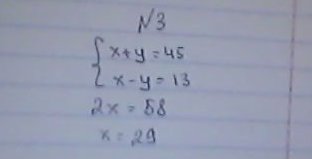 N3
{ x+y=45
x-y=13
2x=58
x=29